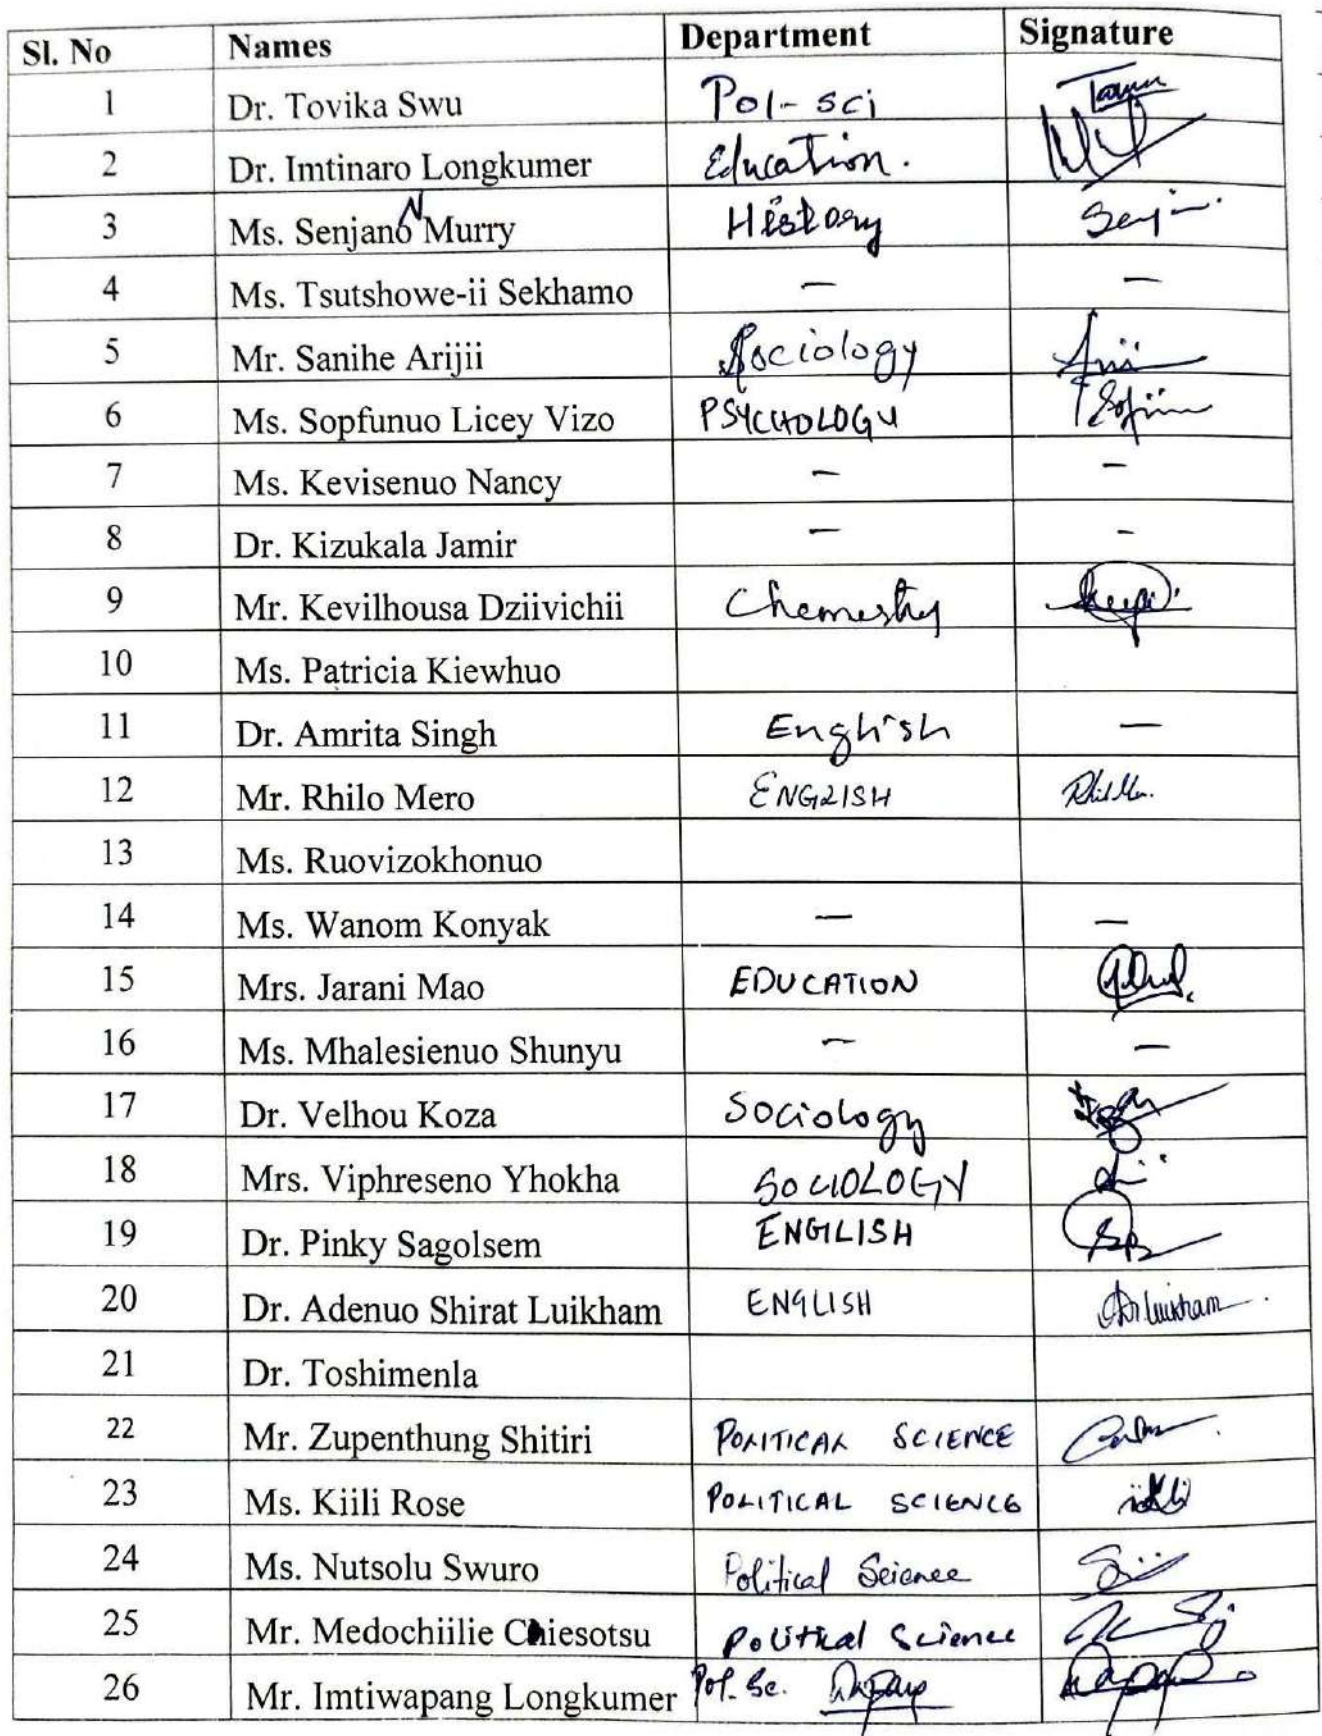 Sl. No Names Department Signature
1 Dr. Tovika Swu Pol-sci
2 Dr. Imtinaro Longkumer Education.
3 Ms. Senjano N Murry History
4 Ms. Tsutshowe-ii Sekhamo — —
5 Mr. Sanihe Arijii Sociology
6 Ms. Sopfunuo Licey Vizo PSYCHOLOGY
7 Ms. Kevisenuo Nancy — —
8 Dr. Kizukala Jamir — -
9 Mr. Kevilhousa Dziivichii Chemestry
10 Ms. Patricia Kiewhuo
11 Dr. Amrita Singh English —
12 Mr. Rhilo Mero ENGLISH
13 Ms. Ruovizokhonuo
14 Ms. Wanom Konyak — —
15 Mrs. Jarani Mao EDUCATION
16 Ms. Mhalesienuo Shunyu — —
17 Dr. Velhou Koza Sociology
18 Mrs. Viphreseno Yhokha SOCIOLOGY
19 Dr. Pinky Sagolsem ENGLISH
20 Dr. Adenuo Shirat Luikham ENGLISH
21 Dr. Toshimenla
22 Mr. Zupenthung Shitiri POLITICAL SCIENCE
23 Ms. Kiili Rose POLITICAL SCIENCE
24 Ms. Nutsolu Swuro Political Science
25 Mr. Medochiilie Chiesotsu Political Science
26 Mr. Imtiwapang Longkumer Pol. Sc.